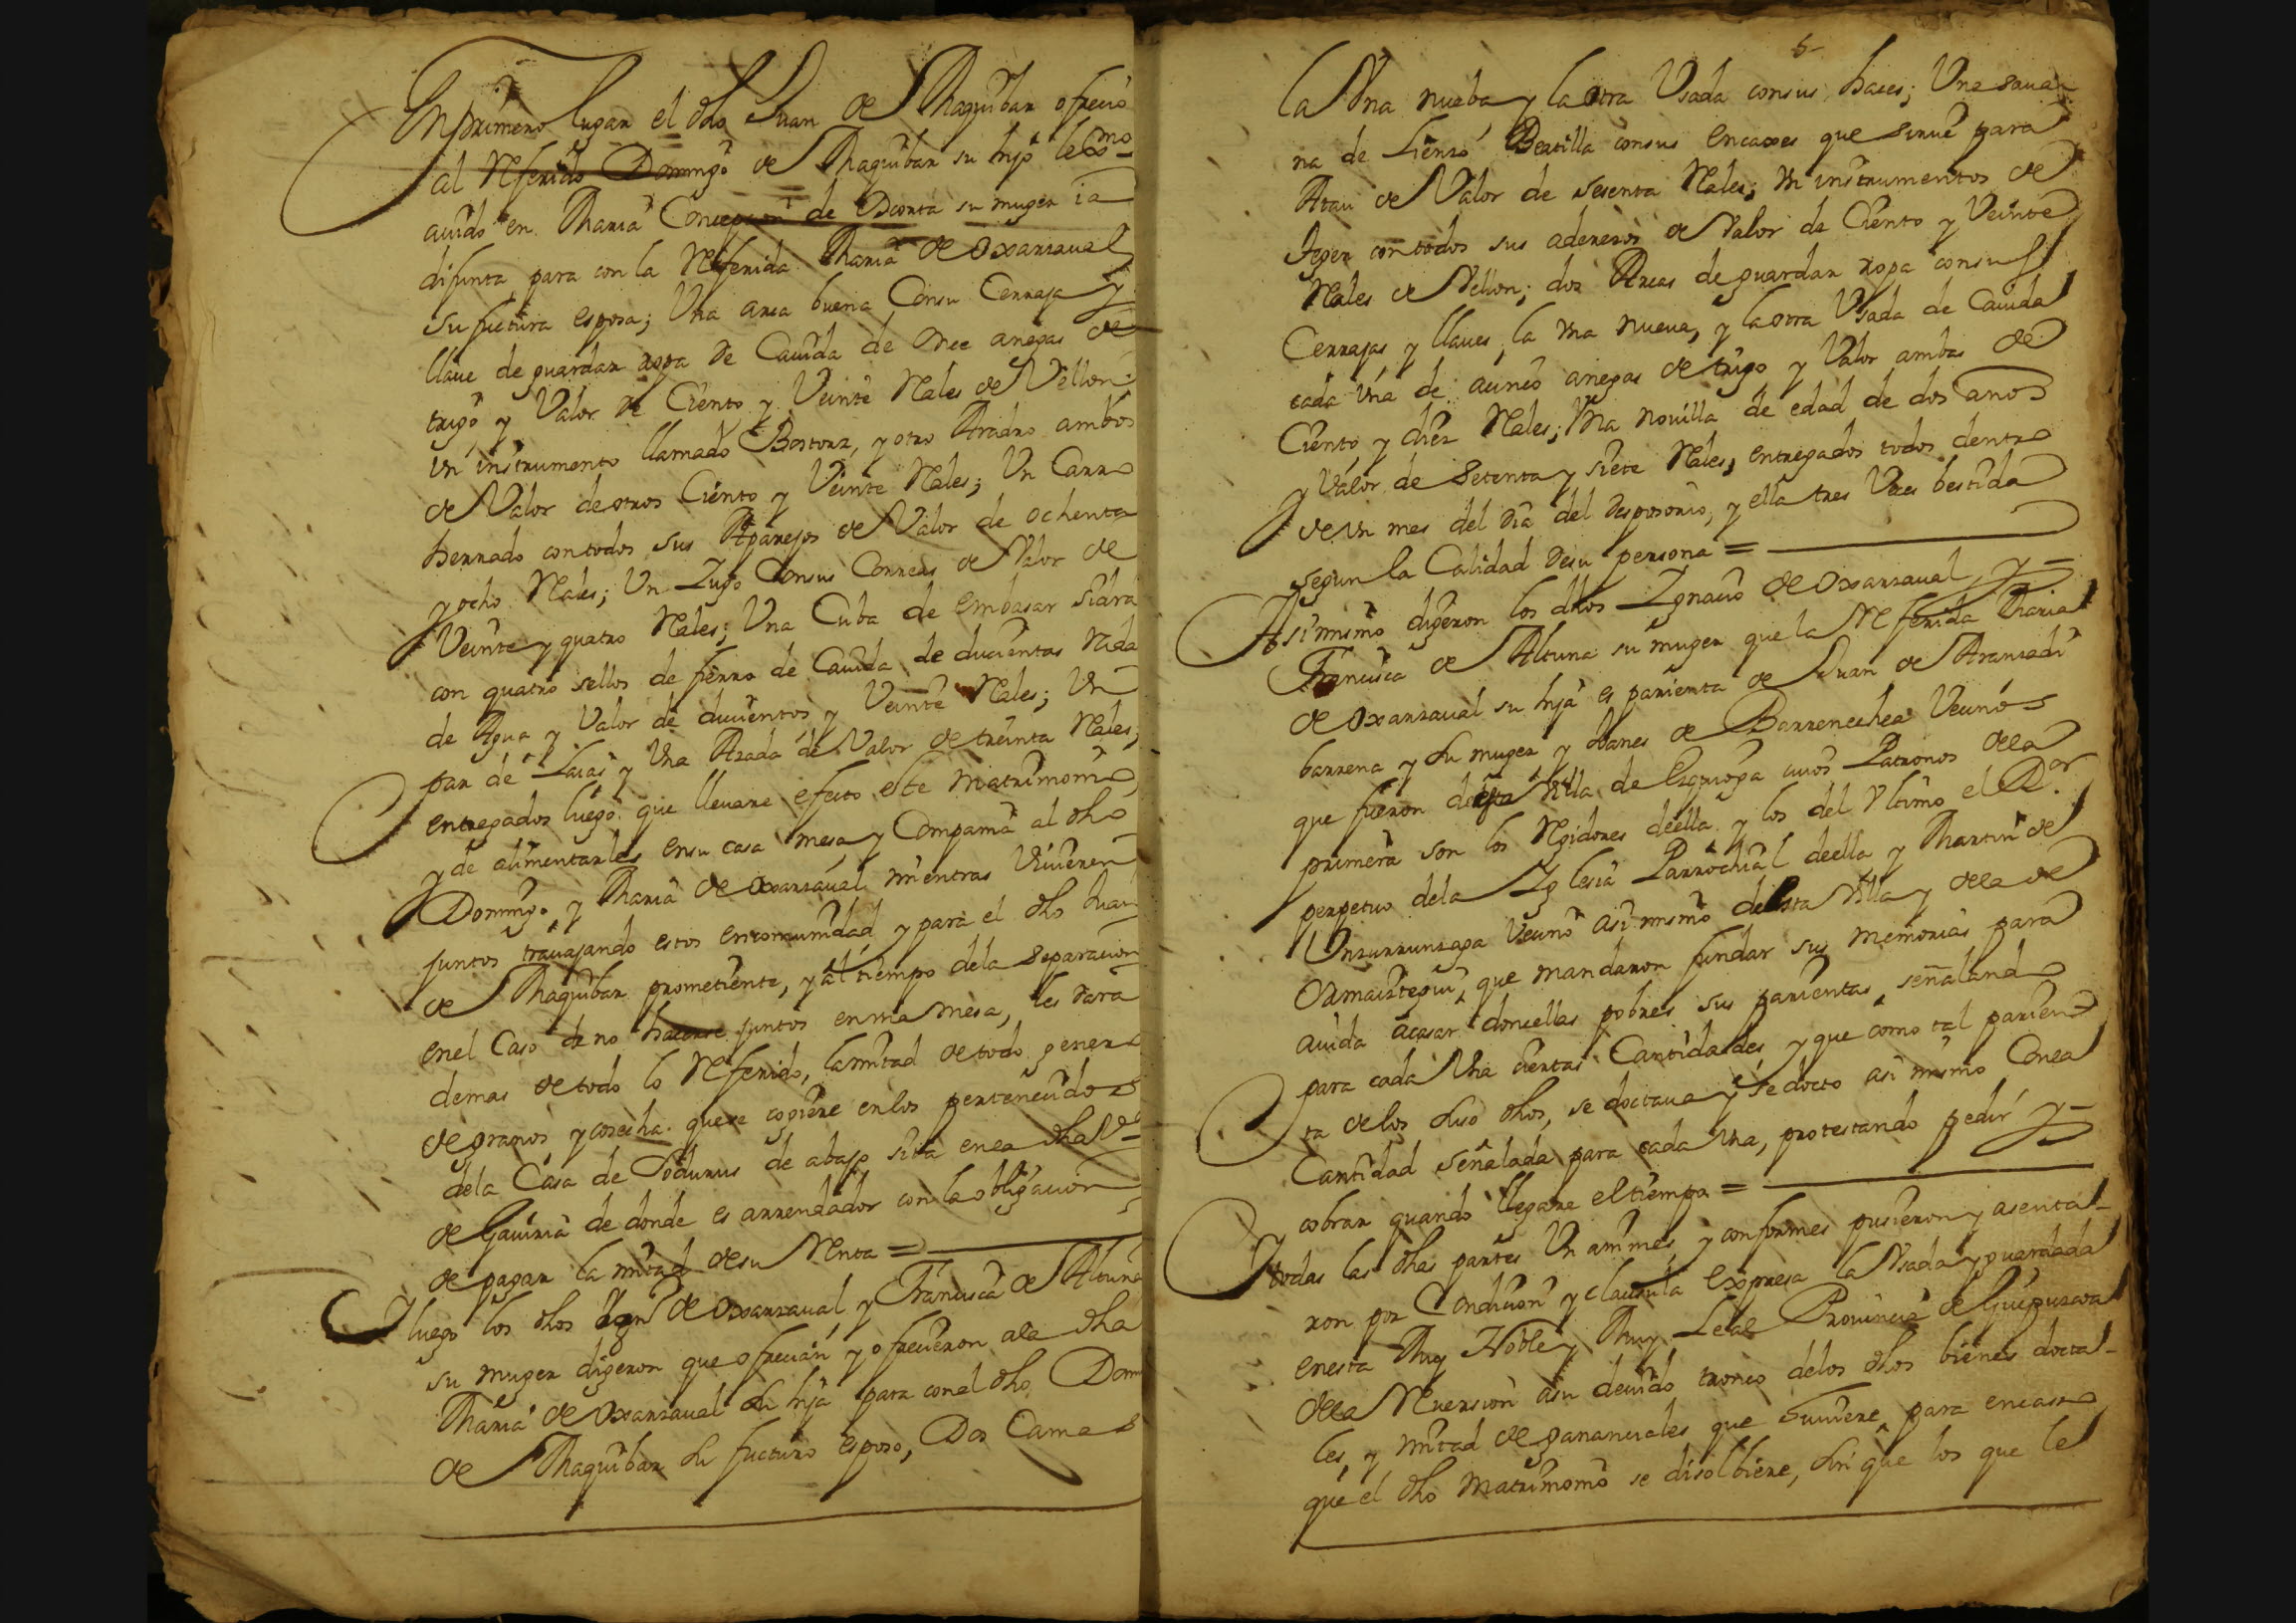 En primero lugar el dho Juan de Maguibar ofrecio
al Referido Domingo de Maguibar su hijo lexmo
auido en Maria Concepcion de su muger ia
difunta, para con la Referida Maria de Oxarzaual
su fuctura esposa; Una arca buena Consu Cerraja y
llaue de guardar ropa de Cauida de once anegas de
trigo y Valor de Ciento y Veinte Rales de Vellon
Un instrumento llamado Bostorz, y otro Aradro ambos
de Valor de otros Ciento y Veinte Rales; Un Carro
herrado contodos sus Aparejos de Valor de ochenta
y ocho Rales; Un Zugo Consus Correas de Valor de
Veinte y quatro Rales; Una Cuba de embasar sidra
con quatro sellos de fierro de Cauida de ducientas
de Agua y Valor de ducientos y Veinte Rales; Un
par de Laias y Una Azada de Valor de treinta Rales;
entregados luego que lleuare efecto este Matrimonio
y de alimentarles ensu casa mesa y Compañia al dho
Domingo y Maria de Oxarzaual mientras Viuieren
juntos trauajando estos encomunidad y para el dho Juan
de Maguibar prometiente, y al tiempo dela separacion
enel Caso de no hacerse juntos enuna mesa, les dara
demas de todo lo Referido, lamitad de todo genero
de granos y cosecha quese cogiere enlos pertenecidos
dela Casa de de abajo sita enla dha Va
de Gauiria de donde es arrendador con la obligacion
de pagar la mitad desu Renta =
Y luego los dhos Ign de Oxarzaual y Francisca de Altuna
su muger digeron que ofrecian y ofrecieron ala dha
Maria de Oxarzaual su hija para conel dho Dom
de Maguibar su fucturo esposo, Dos Camas
5
la Una nueba y la otra Usada consus haces; Una saua
na de Lienzo Beatilla consus encaxes que sirue para
Atau de Valor de sesenta Rales; Un instrumentos de
teger con todos sus aderezos de Valor de Ciento y Veinte
Rales de Vellon; dos Arcas de guardar ropa consus
Cerrajas y llaues, la una nueua, y la otra Usada de Cauida
cada una de acinco anegas de trigo y Valor ambas de
Ciento y diez Rales; Una nouilla de edad de dos años
y Valor de Setenta y siete Rales, entregados todos dentro
de un mes del dia del desposorio, y ella tres Veces bestida
segun la Calidad desu persona =
Asimismo digeron los dhos Ignacio de Oxarzaual y
Francisca de Altuna su muger que la Referida Maria
de Oxarzaual su hija es parienta de Juan de Aranzadi
barrena y su muger y Juanes de Barrenechea Vecinos
que fueron desta Villa de Ezquioga cuios Patronos dela
primera son los Regidores deella y los del Ultimo el Vor
perpetuo dela Iglesia Parrochial deella y Martin de
Unzurrunzaga Vecino asimismo desta Villa y dela de
Ormaiztegui, que mandaron fundar sus memorias para
auida acasar doncellas pobres sus parientas señalando
para cada Una ciertas Cantidades y que como tal parien
ta delos suso dhos, se doctaua y se docto asi mismo Conla
Cantidad señalada para cada una, protestando pedir y
cobrar quando llegare el tiempo =
Y todas las dhas partes Unanimes y conformes pusieron y asenta-
ron por Condicion y clausula expresa la Usada y guardada
enesta Muy Noble y Muy Leal Prouincia de Guipuzcoa
dela Reuersion asu deuido tronco delos dhos bienes docta-
les, y mitad de gananciales que huuiere para encaso
que el dho Matrimonio se disolbiere, sin que los que le